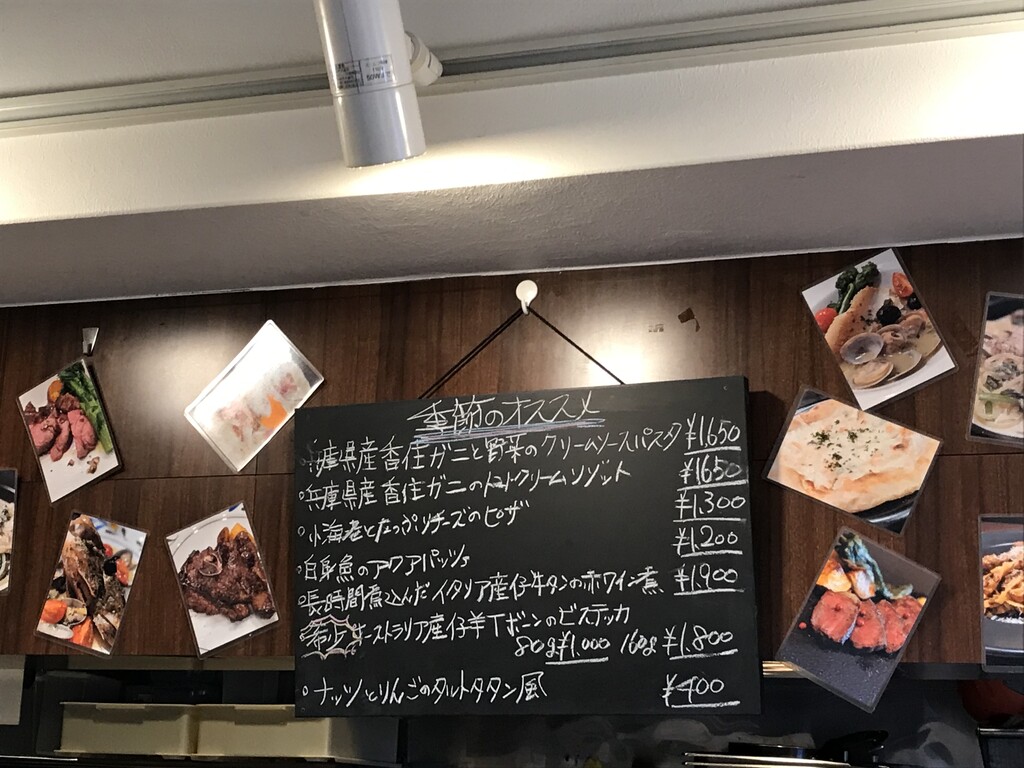 季節のオススメ
◦兵庫県産香住ガニと野菜のクリームソースパスタ ¥1,650
◦兵庫県産香住ガニのトマトクリームリゾット ¥1,650
◦小海老とたっぷりチーズのピザ ¥1,300
◦白身魚のアクアパッツァ ¥1,200
◦長時間煮込んだイタリア産仔牛タンの赤ワイン煮 ¥1,900
希少 オーストラリア産仔羊Tボーンのビステッカ
80g ¥1,000 160g ¥1,800
◦ナッツとりんごのタルトタタン風 ¥400